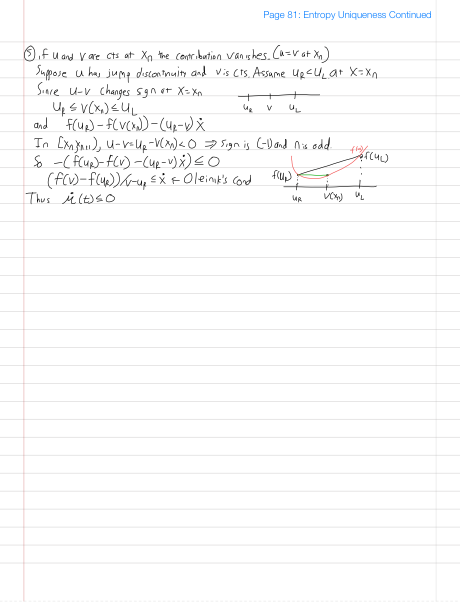 Page 81: Entropy Uniqueness Continued
⑤ if u and v are cts at Xn the contribution vanishes. (u=v at Xn)
Suppose u has jump discontinuity and v is cts. Assume u_R<u_L at X=Xn
Since u-v changes sgn at X=Xn
u_R ≤ v(Xn) ≤ u_L
u_R v u_L
and f(u_R)-f(v(Xn))-(u_R-v)Ẋ
In [Xn,Xn+1), u-v=u_R-v(Xn)<0 ⇒ sign is (-1) and n is odd.
So -(f(u_R)-f(v)-(u_R-v)ẋ) ≤ 0
(f(v)-f(u_R))/v-u_R ≤ ẋ ← Oleinik's cond
f(u) f(u_L)
f(u_R)
u_R v(Xn) u_L
Thus μ̇(t) ≤ 0